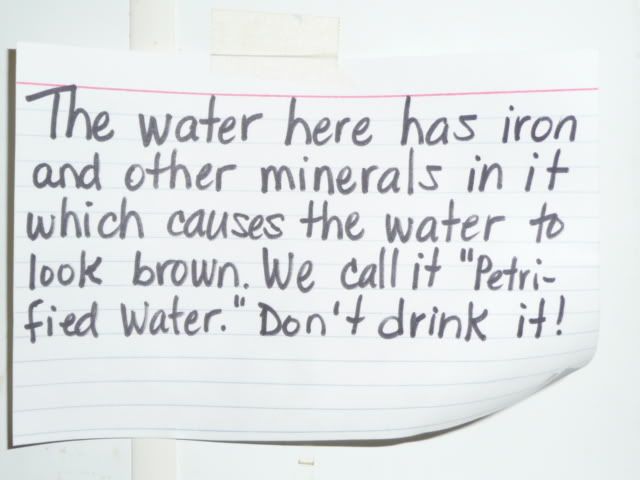 The water here has iron
and other minerals in it
which causes the water to
look brown. We call it "Petri-
fied Water." Don't drink it!